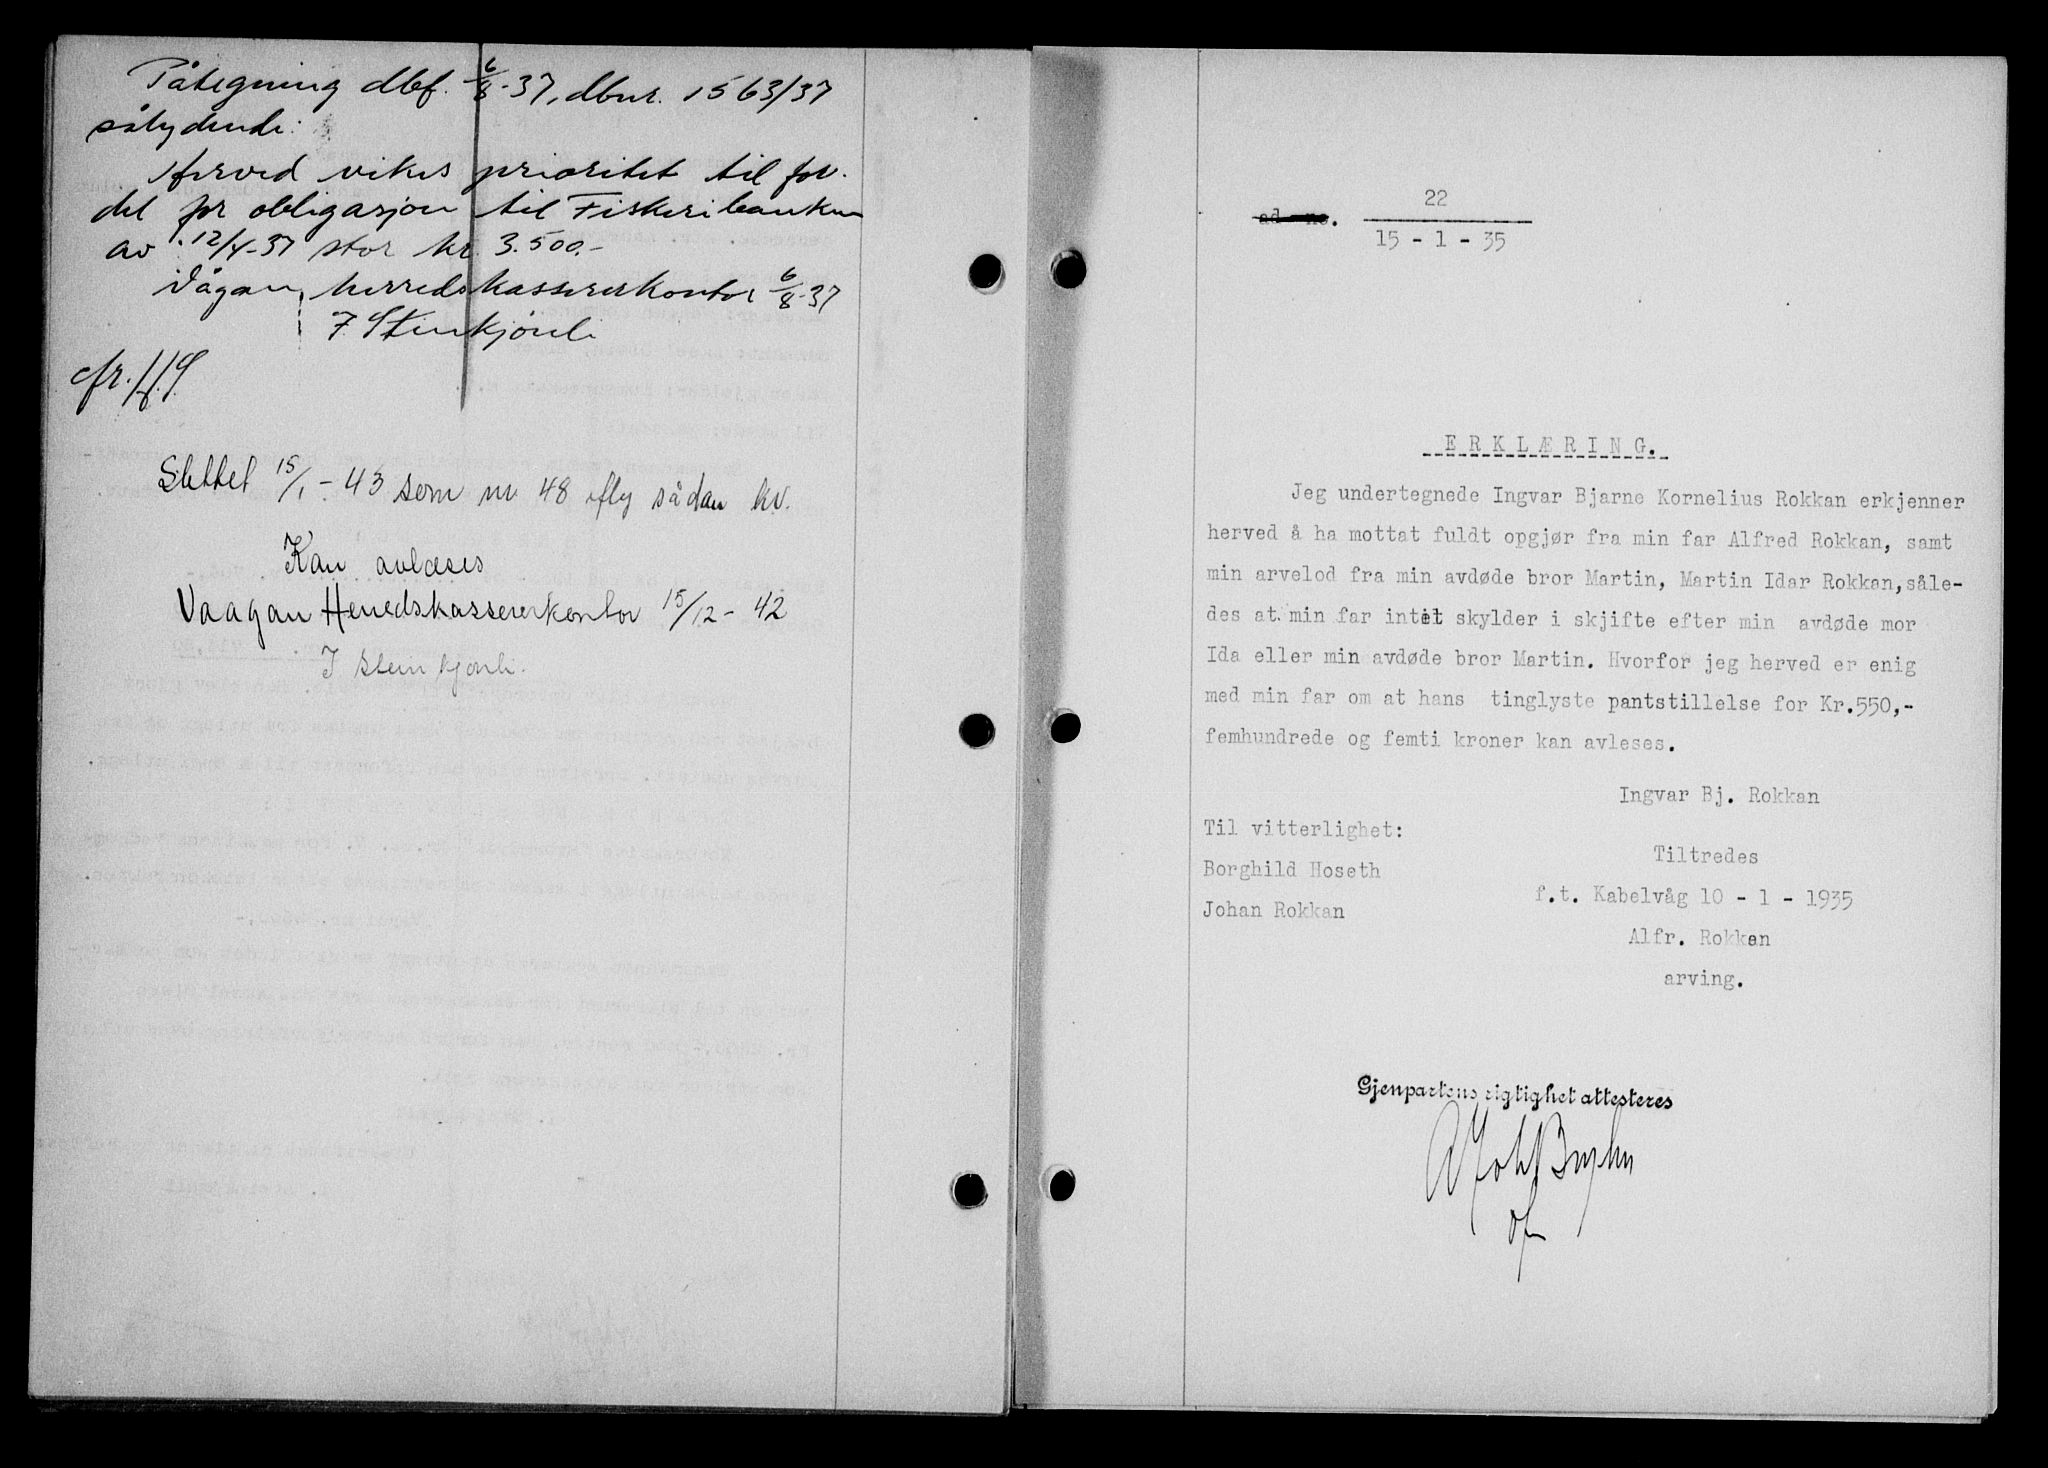 Påtegning dbf. 6/8-37, dbnr. 1563/37
sålydende:
Herved vikes prioritet til for-
del for obligasjon til Fiskeribanken
av 12/4-37 stor kr. 3.500.-
Vågan, herredskassererkontor 6/8-37
J. Steinkjønli
cfr.
Slettet 15/1-43 som nr 48 efly sådan kv.
Kan avlæses
Vaagan Herredskassererkontor 15/12-42
J Steinkjønli.
22
ad no. 15 - 1 - 35
ERKLÆRING.
Jeg undertegnede Ingvar Bjarne Kornelius Rokkan erkjenner
herved å ha mottat fuldt opgjør fra min far Alfred Rokkan, samt
min arvelod fra min avdøde bror Martin, Martin Idar Rokkan, såle-
des at min far intet skylder i skjifte efter min avdøde mor
Ida eller min avdøde bror Martin. Hvorfor jeg herved er enig
med min far om at hans tinglyste pantstillelse for Kr.550,-
femhundrede og femti kroner kan avleses.
Ingvar Bj. Rokkan
Til vitterlighet:
Tiltredes
Borghild Hoseth
f.t. Kabelvåg 10 - 1 - 1935
Johan Rokkan
Alfr. Rokkan
arving.
Gjenpartens rigtighet attesteres